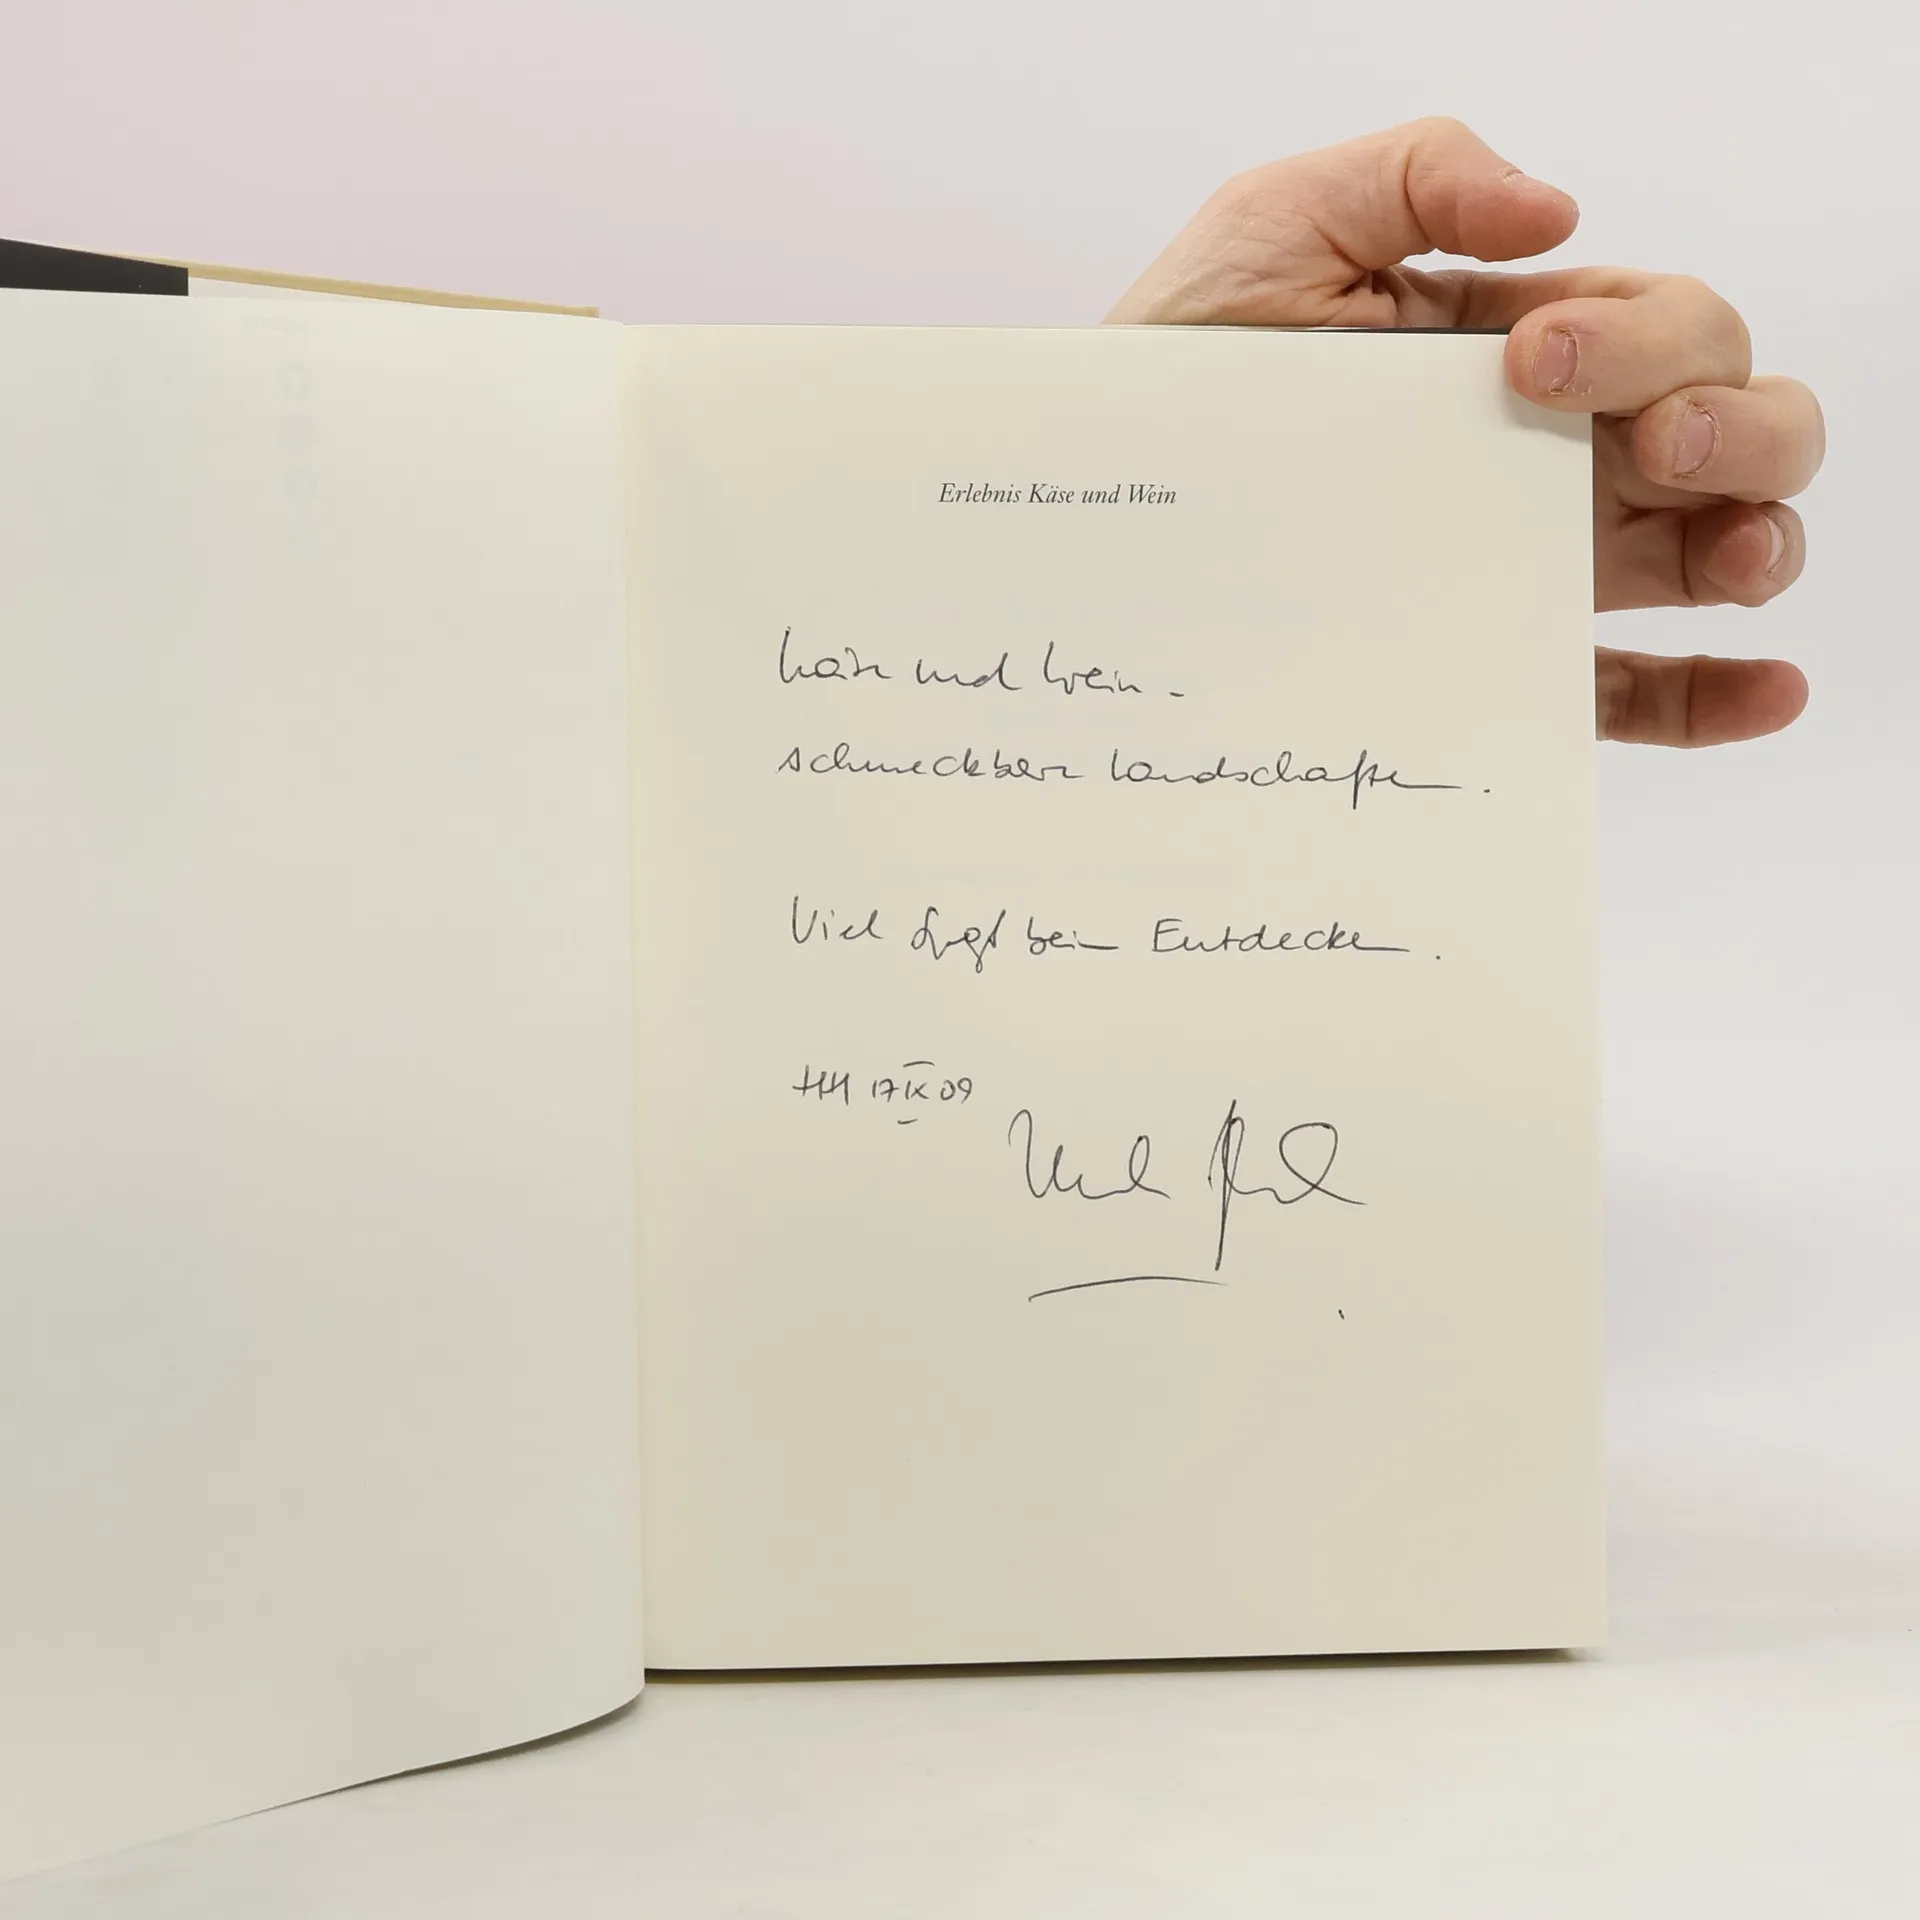 Erlebnis Käse und Wein
Käse und Wein -
schmeckbare Landschaften.
Viel Spaß beim Entdecken.
HH 17 IX 09